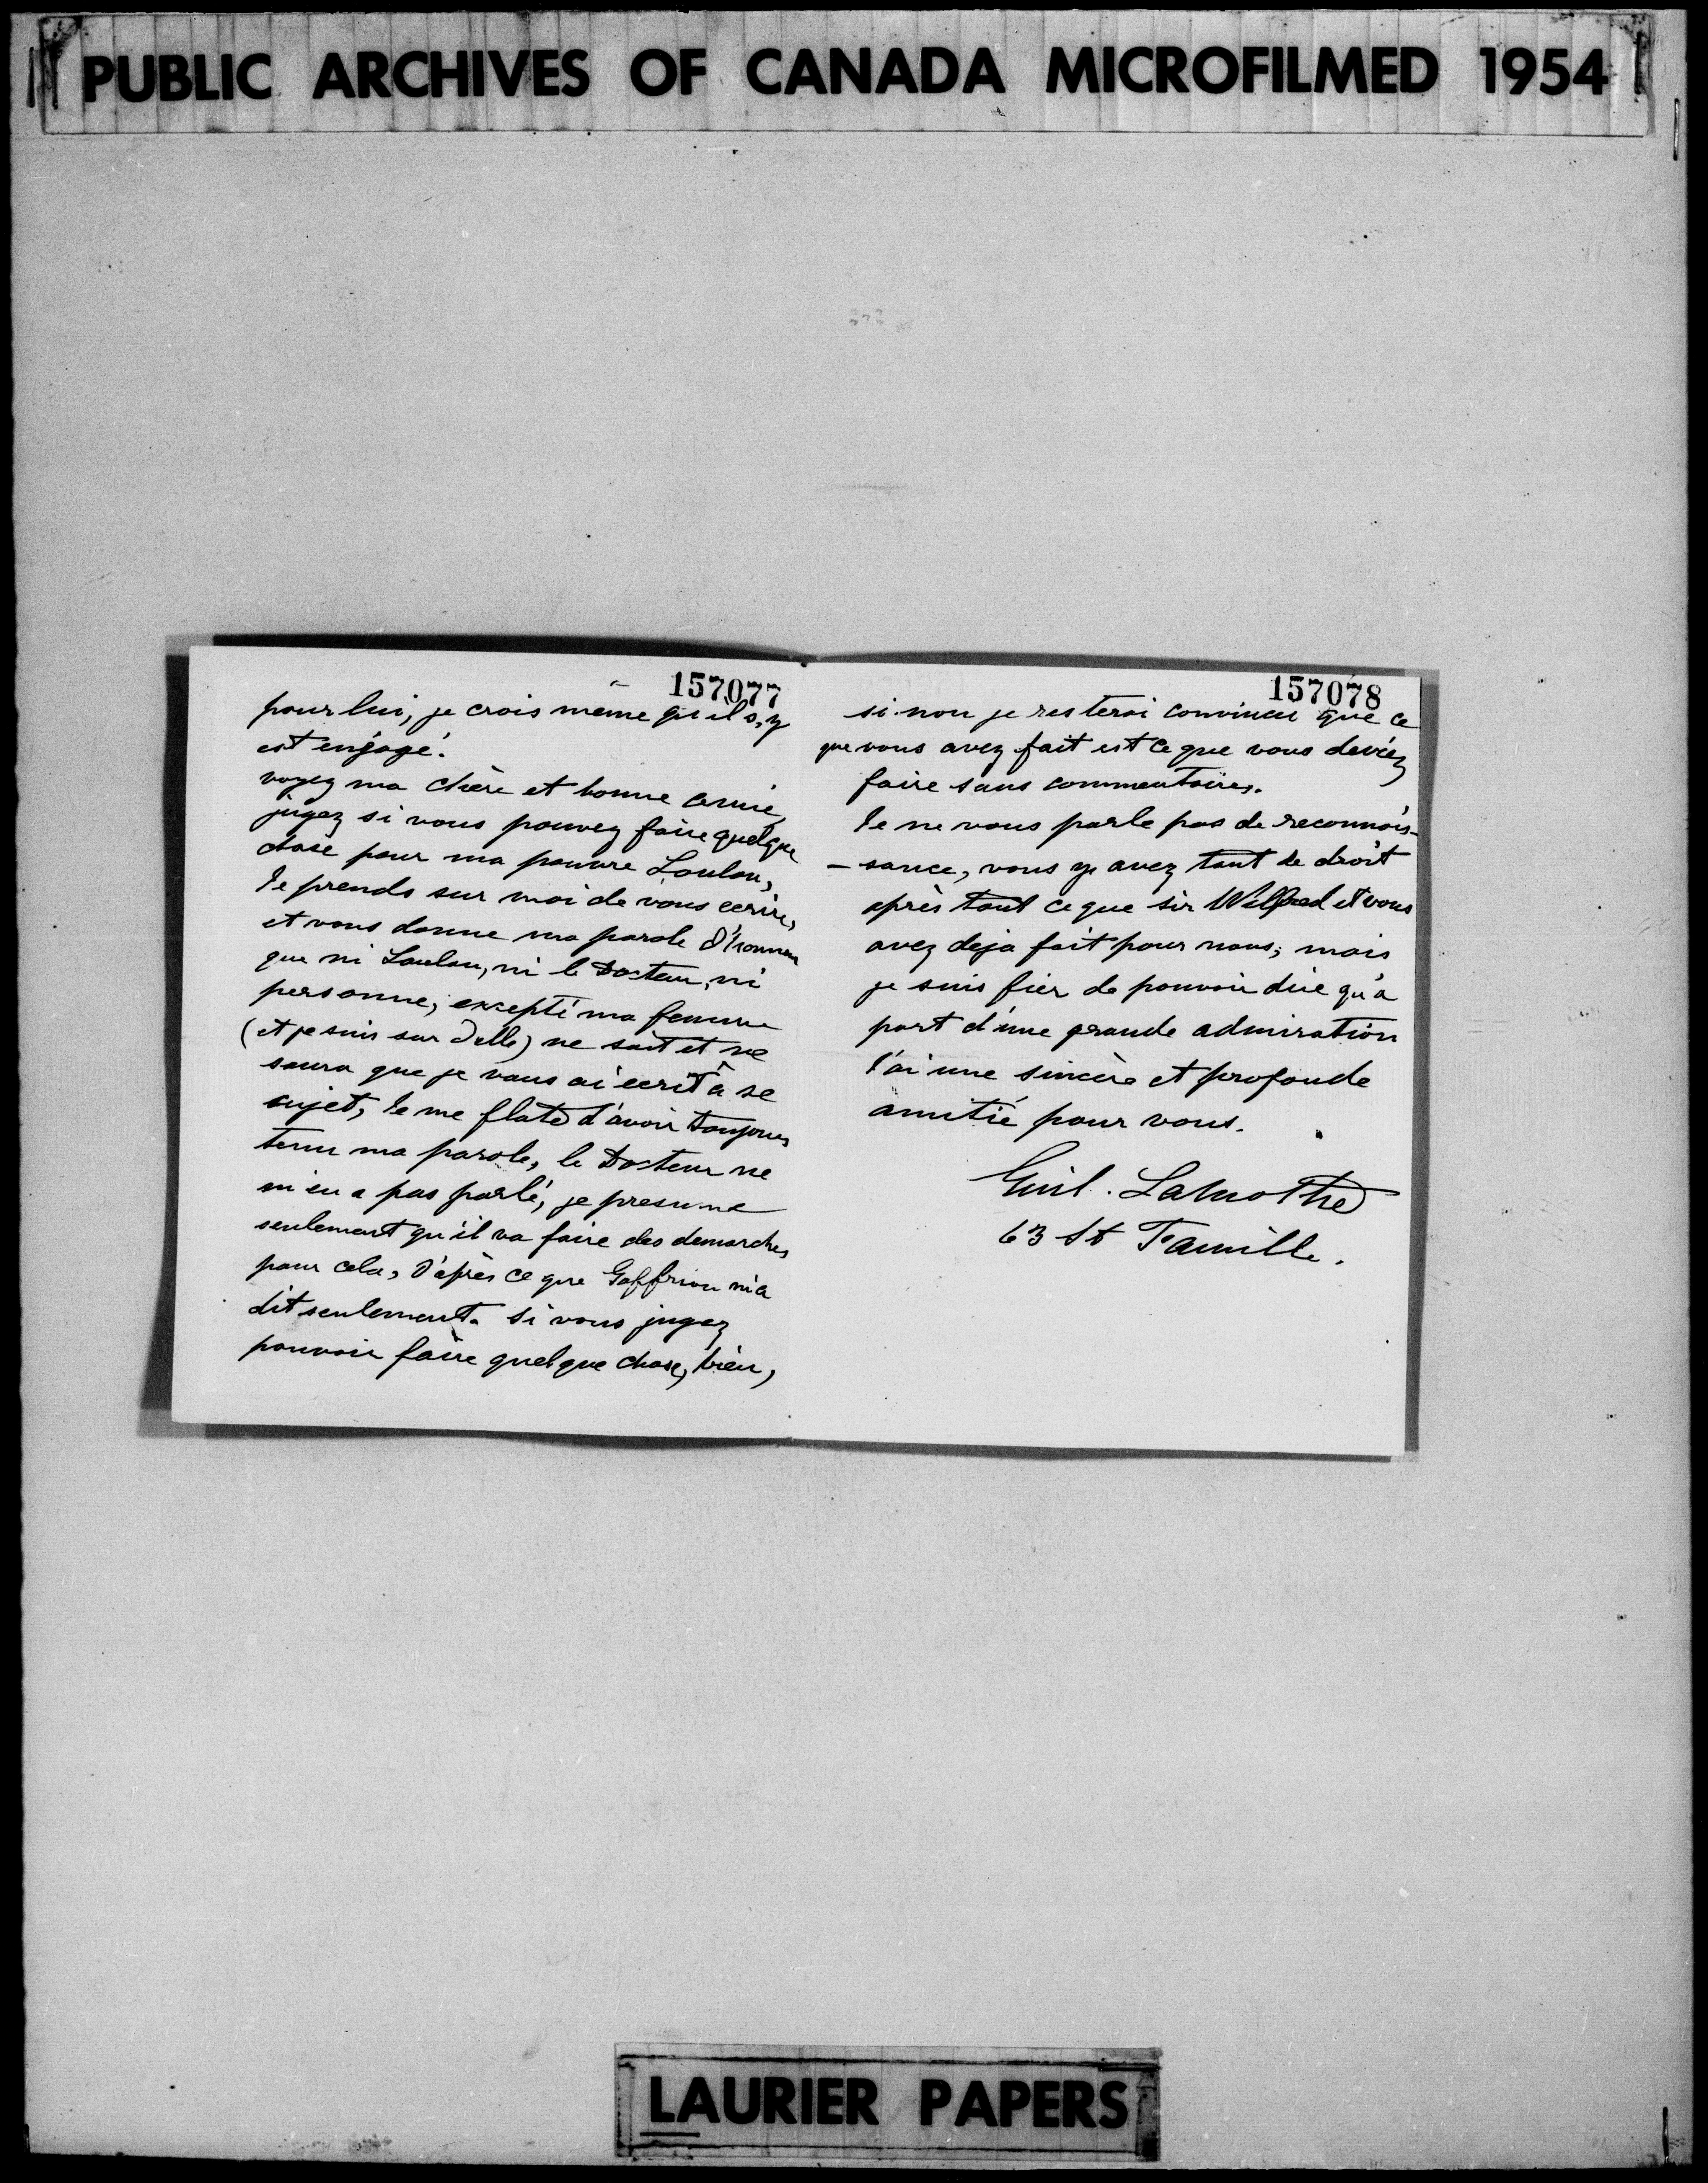 PUBLIC ARCHIVES OF CANADA MICROFILMED 1954
157077
pour lui, je crois même qu'il s,y
est engagé.
voyez ma chère et bonne amie,
jugez si vous pouvez faire quelque
chose pour ma pauvre Loulou,
Je prends sur moi de vous ecrire,
et vous donne ma parole d'honneur
que ni Loulou, ni le Docteur, ni
personne, excepté ma femme
(et je suis sur d'elle) ne sait et ne
saura que je vous ai ecrit à se
sujet, Je me flate d'avoir toujours
tenu ma parole, le Docteur ne
m'en a pas parlé, je presume
seulement qu'il va faire des demarches
pour cela, d'après ce que Geffrion m'a
dit seulement. si vous jugez
pouvoir faire quelque chose, bien,
157078
si non je resterai convaincu que ce
que vous avez fait est ce que vous deviez
faire sans commentaires.
Je ne vous parle pas de reconnois-
-sance, vous y avez tant de droit
après tout ce que sir Wilfred et vous
avez deja fait pour nous, mais
je suis fier de pouvoir dire qu'à
part d'une grande admiration
J'ai une sincère et profonde
amitié pour vous.
Guil. Lamothe
63 St Famille.
LAURIER PAPERS